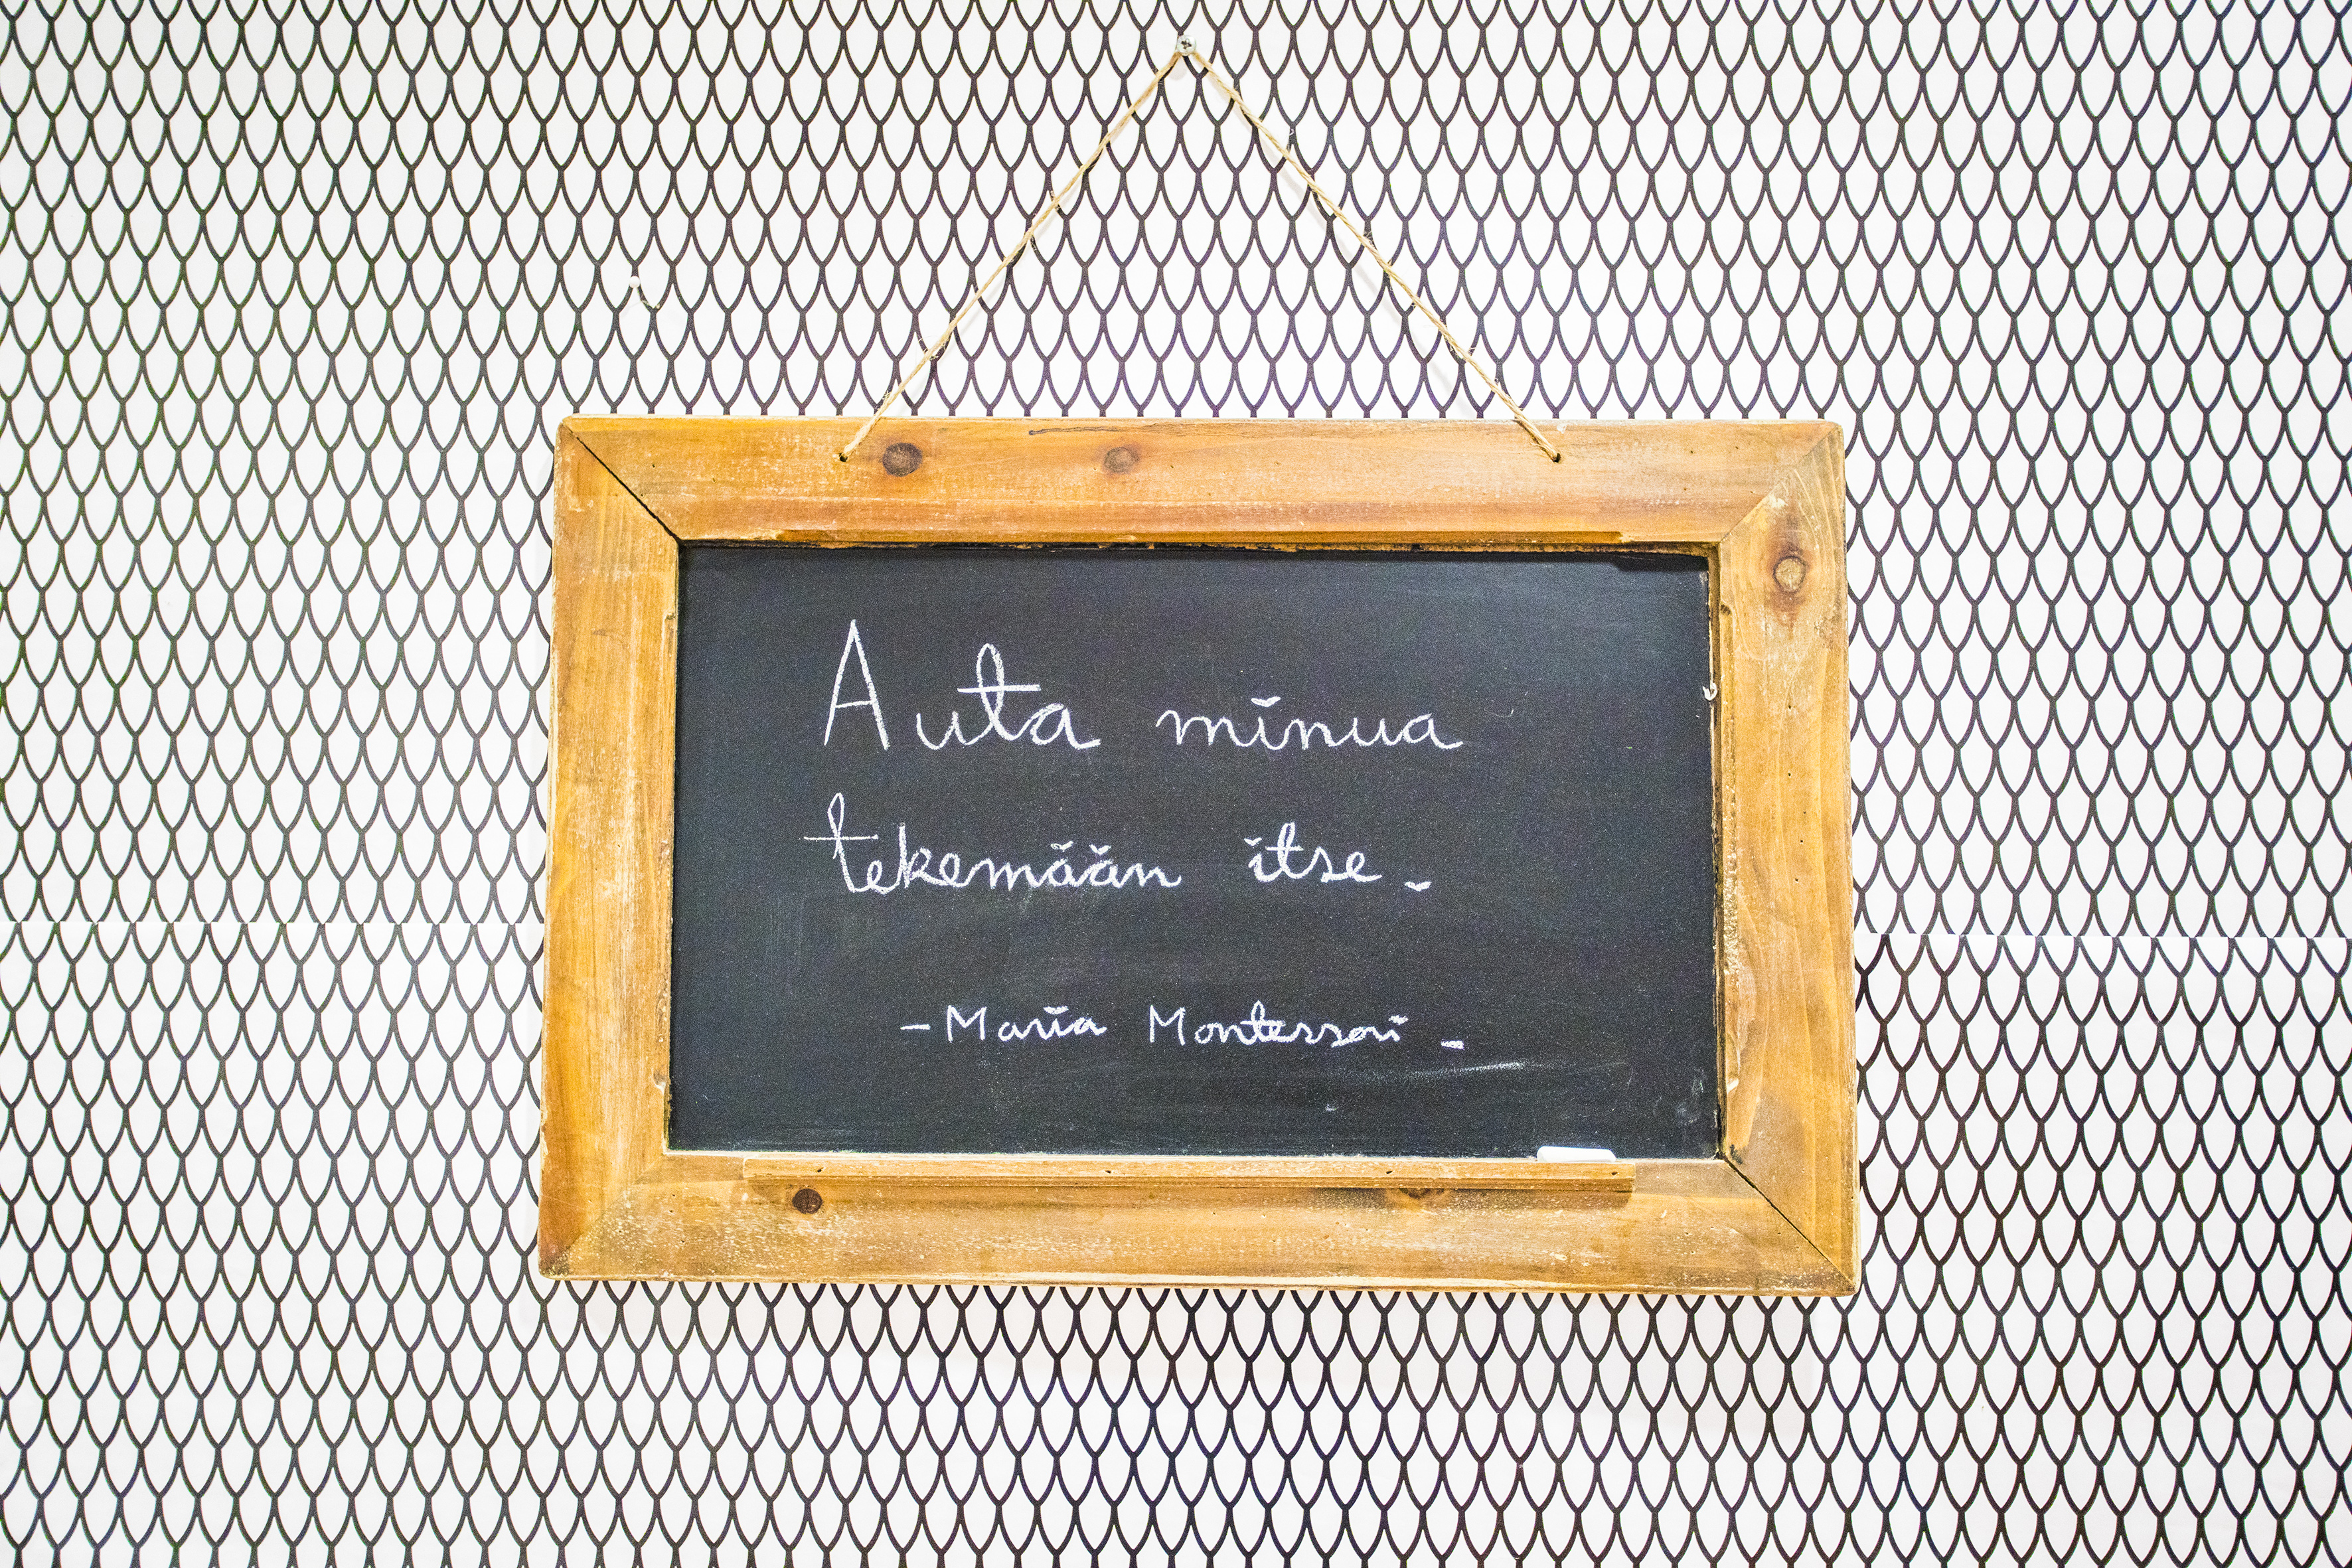 Auta minua
tekemään itse.
- Maria Montessori -